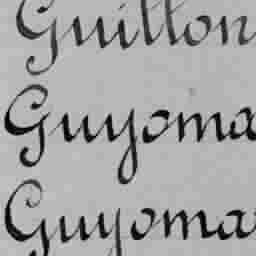 Guillon
Guyoma
Guyoma